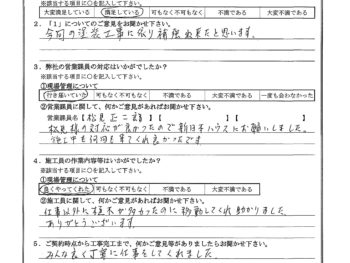 ※該当する項目に○を記入して下さい。
大変満足している 満足している 可もなく不可もなく 不満である 大変不満である
2．「1」についてのご意見をお聞かせ下さい。
今回の塗装工事に依り補修出来たと思います。
3．弊社の営業課員の対応はいかがでしたか？
※該当する項目に○を記入して下さい。
①現場管理について
行き届いていた 可もなく不可もなく 不満である 大変不満である 一度も会わなかった
②営業課員に関して、何かご意見があればお聞かせ下さい。
営業課員名【松見正二様】【 】【 】
松見様の対応が良かったので新日本ハウスにお願いしました。
施工中も何回も来てくれ良かったです
4．施工員の作業内容等はいかがでしたか？
※該当する項目に○を記入して下さい。
①現場管理について
良くやってくれた 可もなく不可もなく 不満である 大変不満である
②施工員に関して、何かご意見があればお聞かせ下さい。
仕事以外に植木が多かったのに移動してくれ助かりました。
ありがとうございます。
5．ご契約時点から工事完工まで、何かご意見等ありましたらお聞かせ下さい。
みんな良く丁寧に仕事をしてくれました。